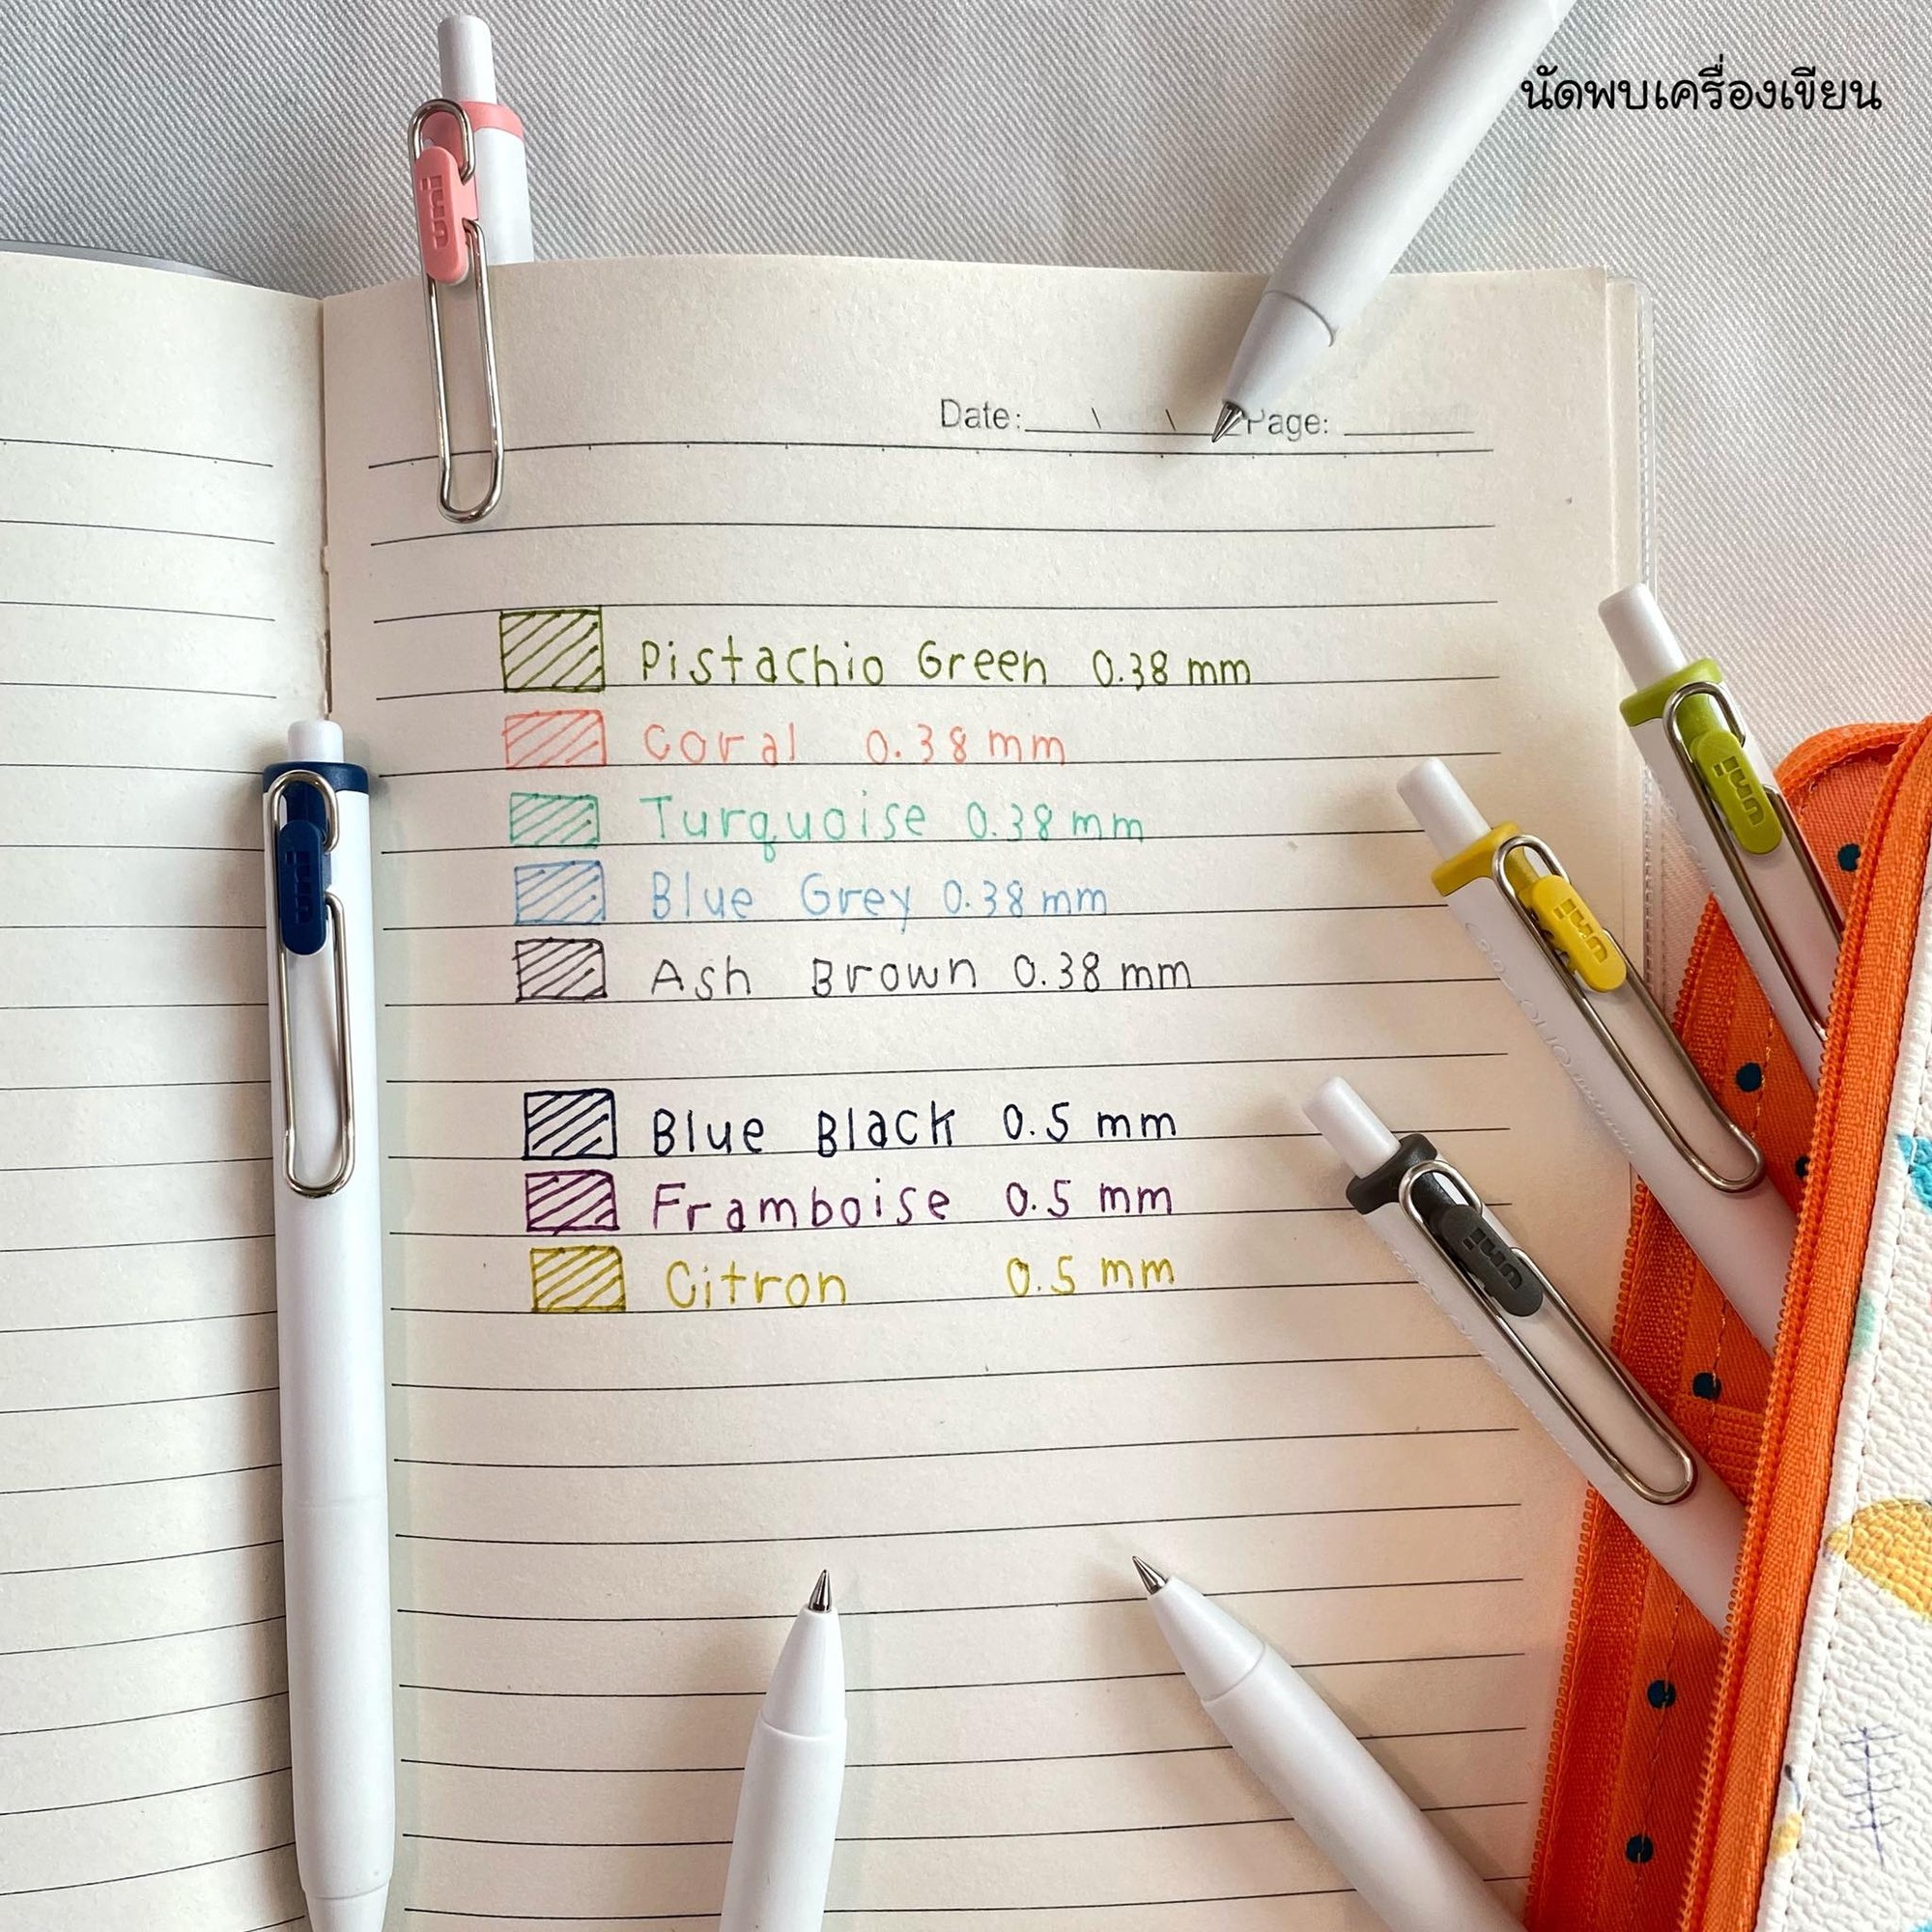 นัดพบเครื่องเขียน
uni
Date: Page:
Pistachio Green 0.38 mm
Coral 0.38 mm
Turquoise 0.38 mm
Blue Grey 0.38 mm
Ash Brown 0.38 mm
Blue Black 0.5 mm
Framboise 0.5 mm
Citron 0.5 mm
uni
uni
uni
uni